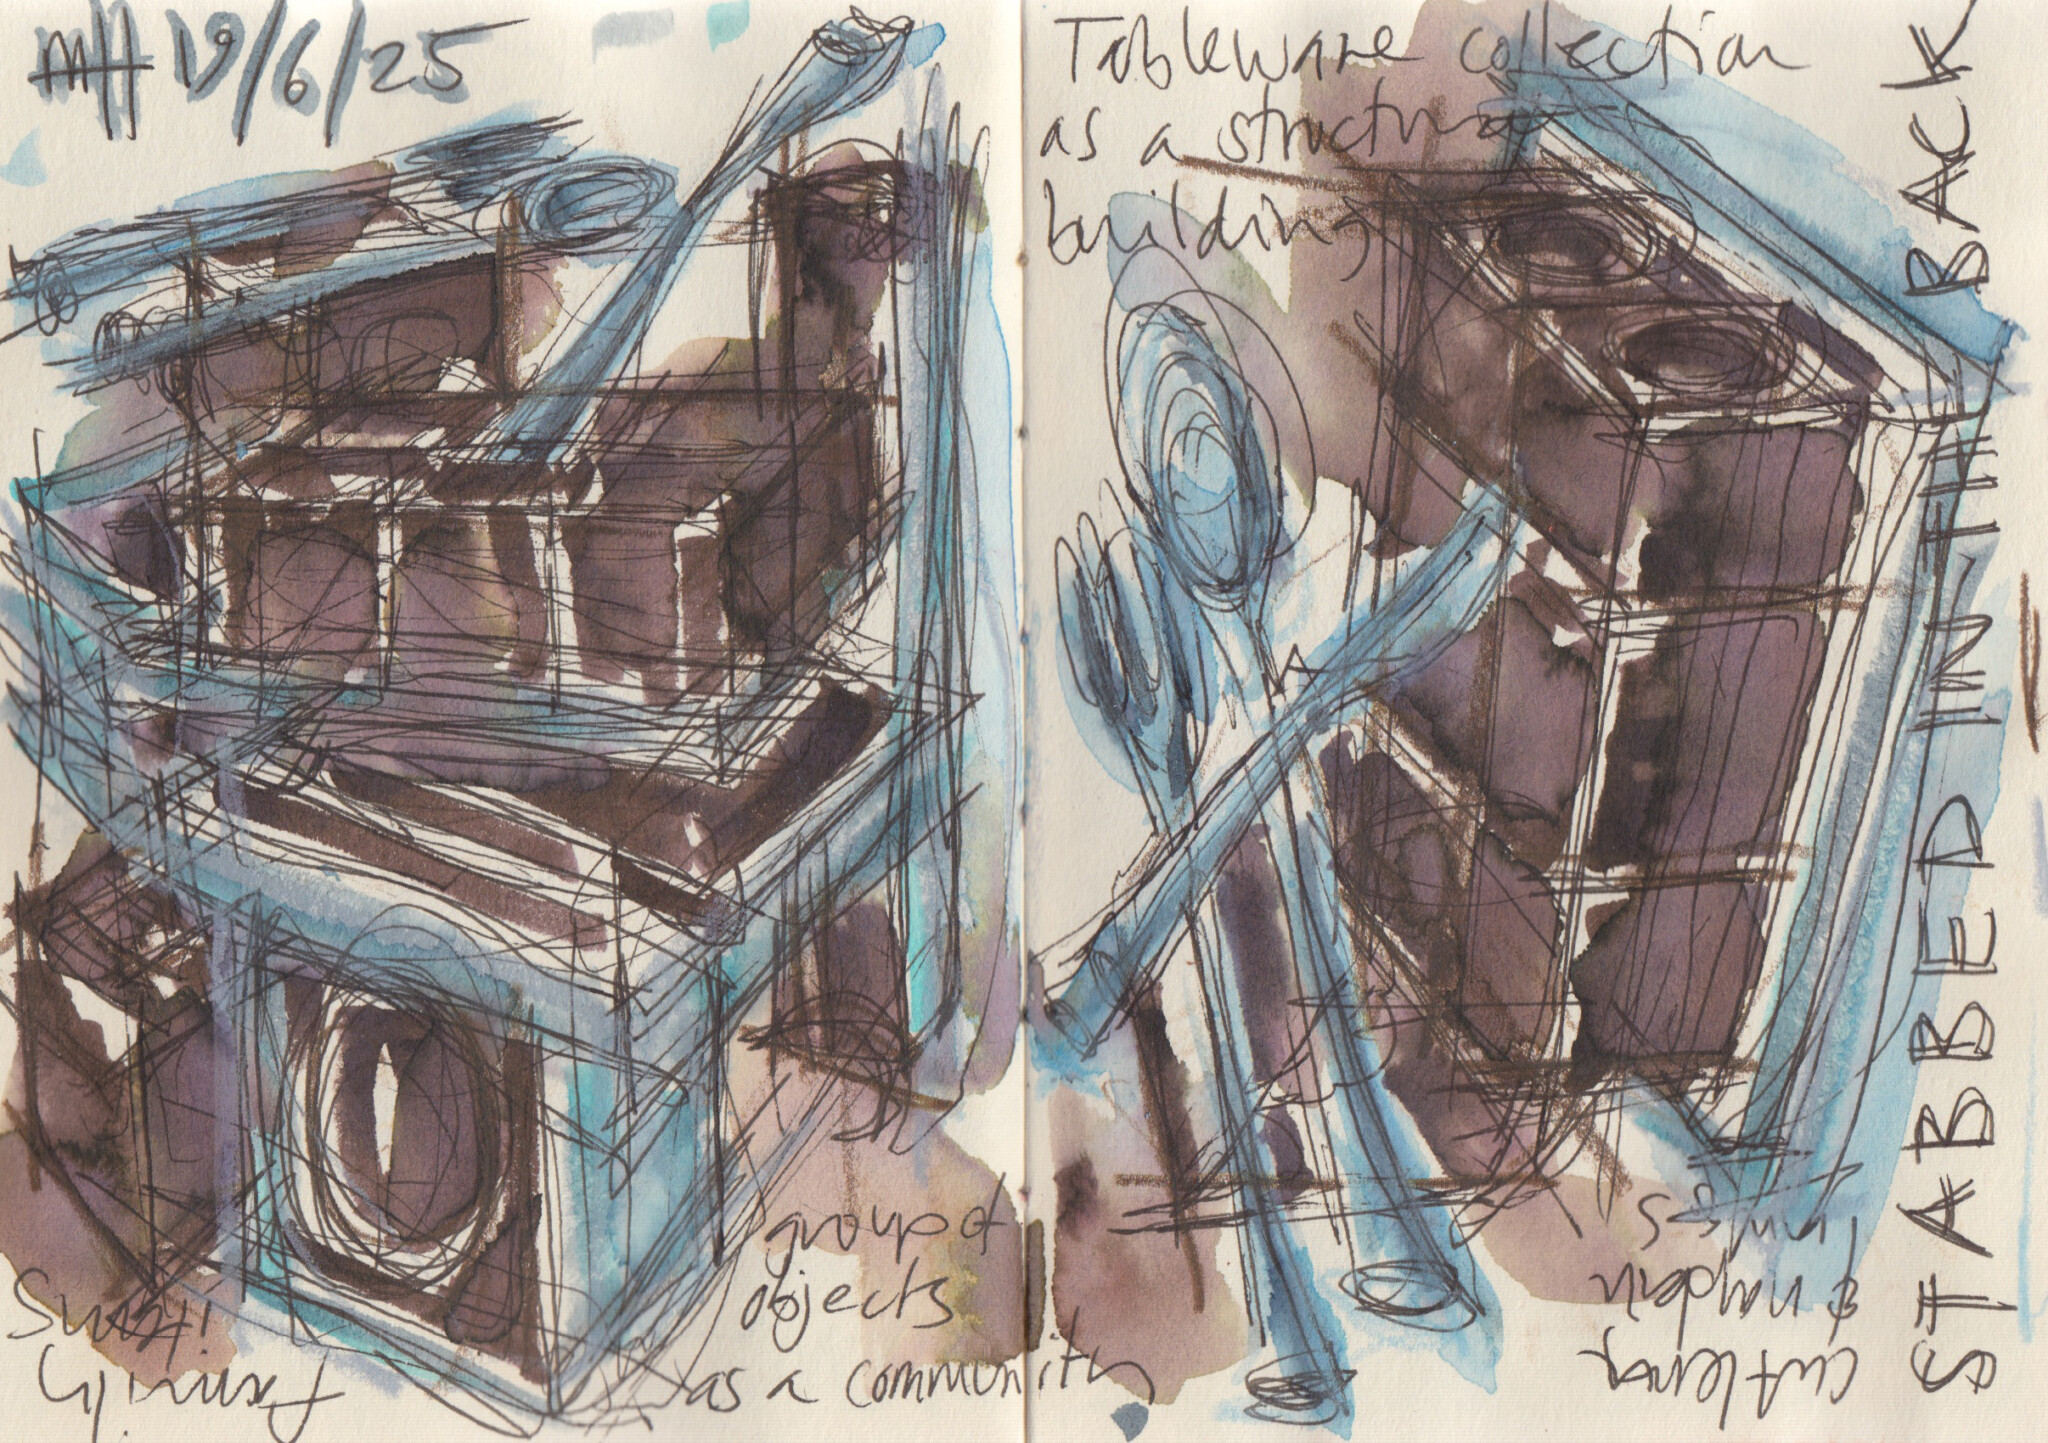 MH 19/6/25
Tableware collection
as a structure
building
STABBED IN THE BACK
group of
objects
as a community
Family
items
cutlery
& napkin
rings